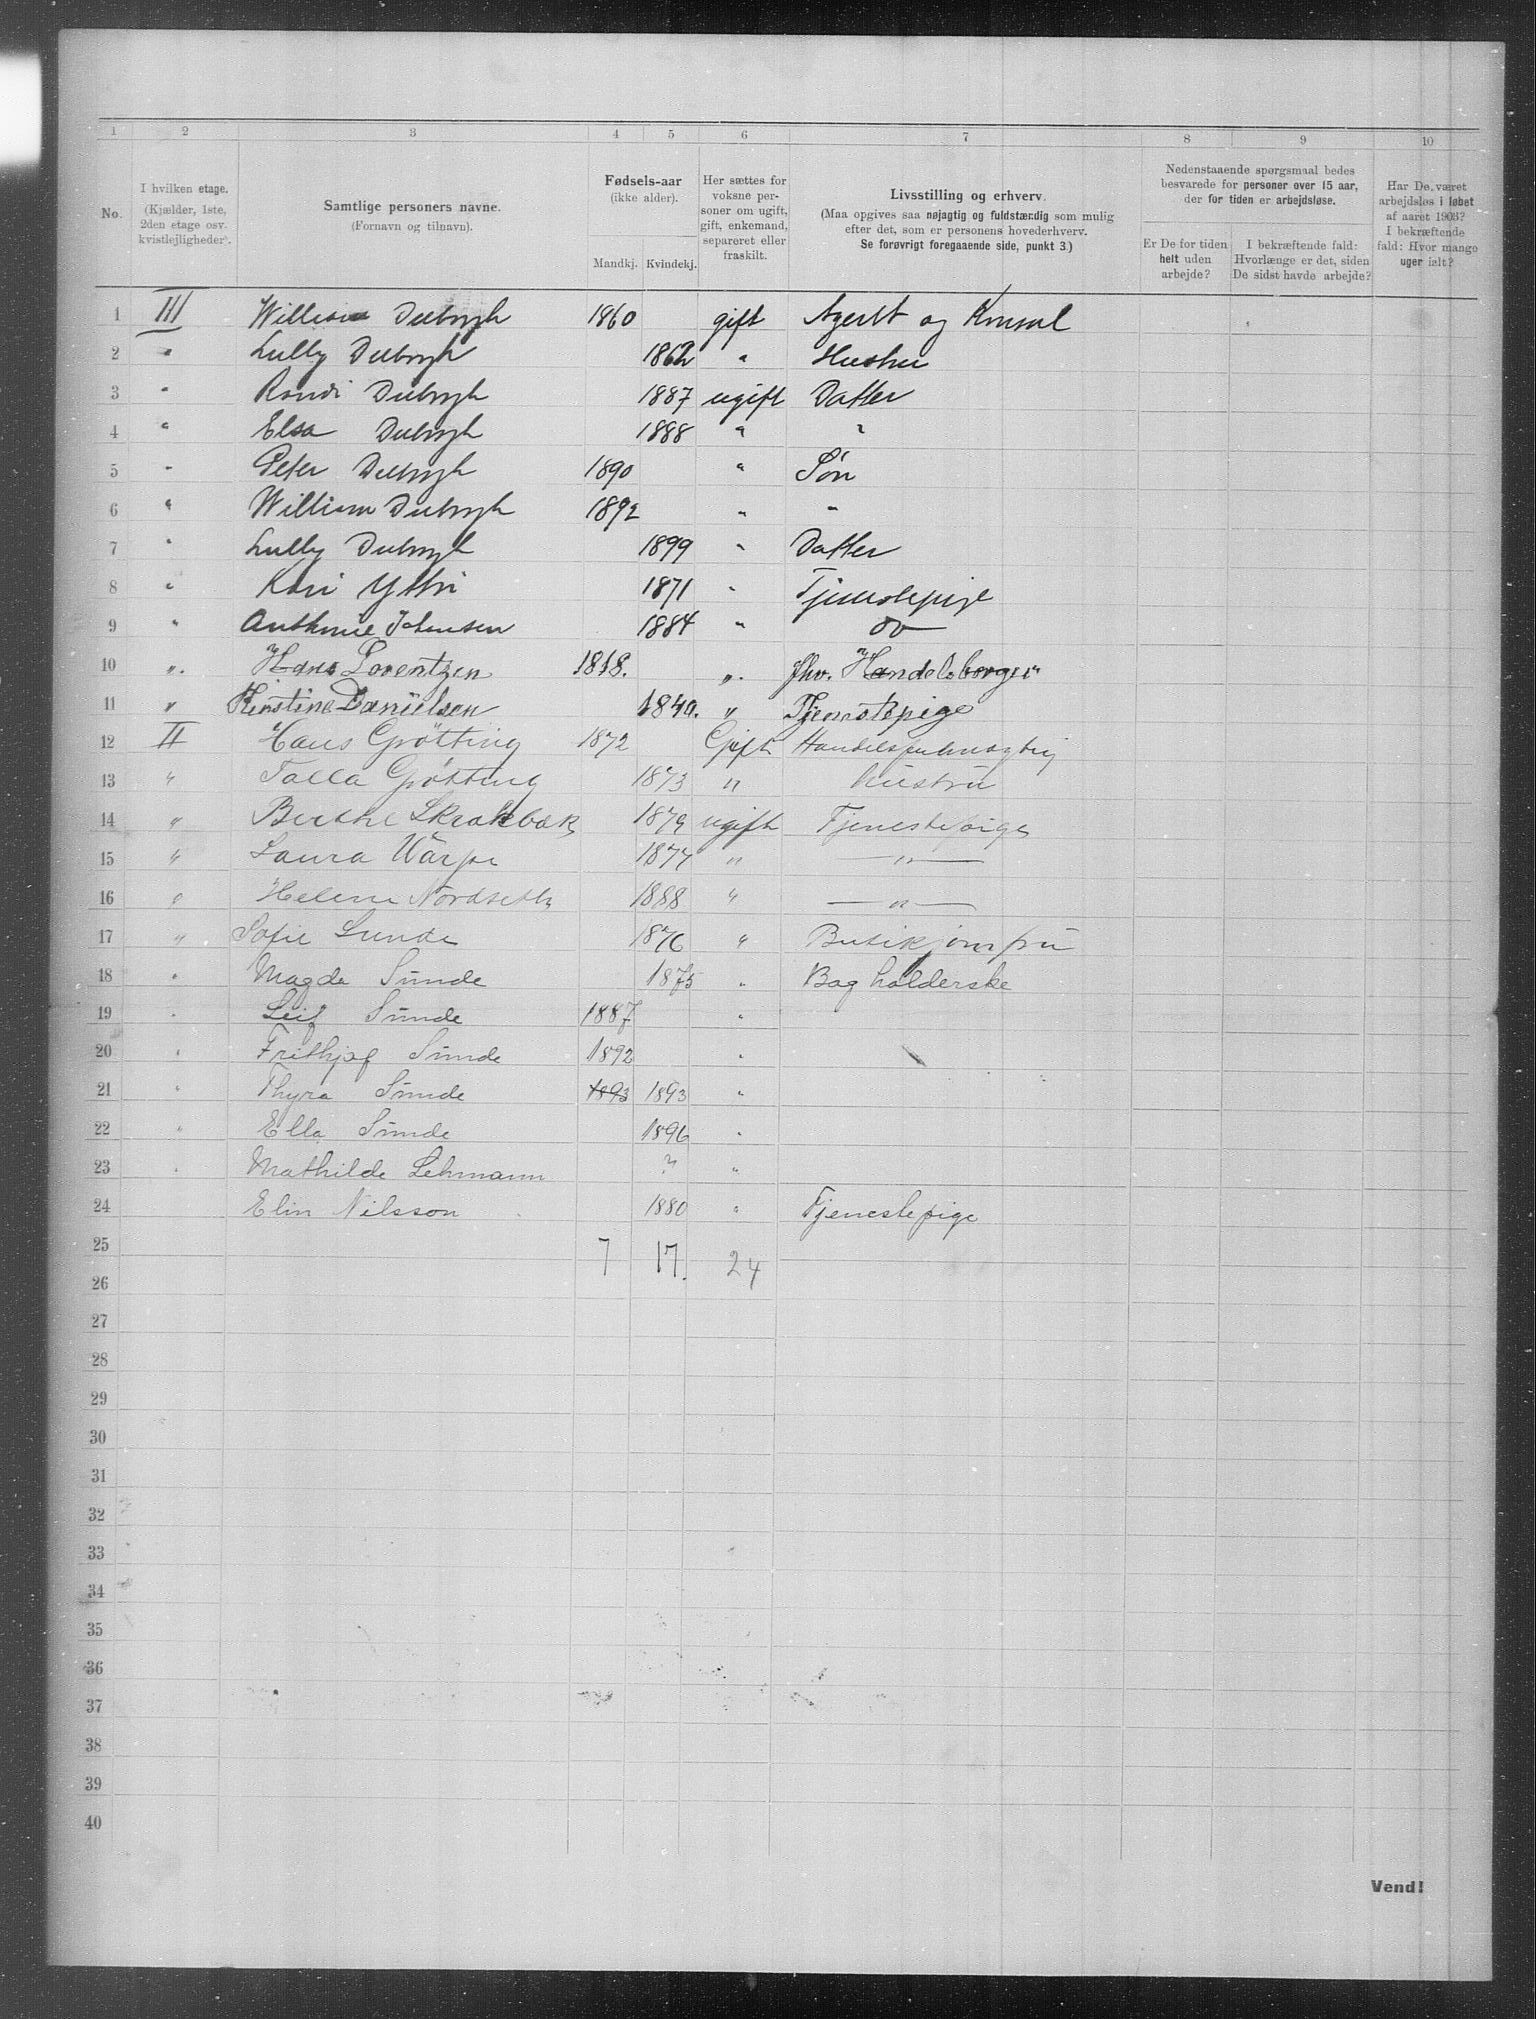 1 2 3 4 5 6 7 8 9 10
No.
I hvilken etage.
(Kjælder, 1ste,
2den etage osv.
kvistlejligheder).
Samtlige personers navne.
(Fornavn og tilnavn).
Fødsels-aar
(ikke alder).
Mandkj. Kvindekj.
Her sættes for
voksne per-
soner om ugift,
gift, enkemand,
separeret eller
fraskilt.
Livsstilling og erhverv.
(Maa opgives saa nøjagtig og fuldstændig som mulig
efter det, som er personens hovederhverv.
Se forøvrigt foregaaende side, punkt 3.)
Nedenstaaende spørgsmaal bedes
besvarede for personer over 15 aar,
der for tiden er arbejdsløse.
Er De for tiden
helt uden
arbejde?
I bekræftende fald:
Hvorlænge er det, siden
De sidst havde arbejde?
Har De været
arbejdsløs i løbet
af aaret 1903?
I bekræftende
fald: Hvor mange
uger ialt?
1 III William Duborgh 1860 gift Agent og Konsul
2 " Lully Duborgh 1862 " Hustru
3 " Randi Duborgh 1887 ugift Datter
4 " Elsa Duborgh 1888 " "
5 " Peter Duborgh 1890 " Søn
6 " William Duborgh 1892 " "
7 " Lully Duborgh 1899 " Datter
8 " Kari Ytbri 1871 " Tjenestepige
9 " Anthonie Johansen 1884 " do
10 " Hans Lorentzen 1818. " fhv. Handelsborger
11 " Kirstine Danielsen 1840. " Tjenestepige
12 II Hans Grøtting 1872 Gift Handelsfuldmægtig
13 " Talla Grøtting 1873 " Hustru
14 " Berthe Skrakbæk 1879 ugift Tjenestepige
15 " Laura 1877 " — " —
16 " Helene Nordseth 1888 " — " —
17 " Sofie Sunde 1876 " Butikjomfru
18 " Magda Sunde 1875 " Bogholderske
19 " Leif Sunde 1887 "
20 " Frithjof Sunde 1892 "
21 " Thyra Sunde 1893 1893 "
22 " Ella Sunde 1896 "
23 " Mathilde Lehmann ? "
24 Elin Nilsson 1880 " Tjenestepige
25 7 17. 24
26
27
28
29
30
31
32
33
34
35
36
37
38
39
40
Vend!